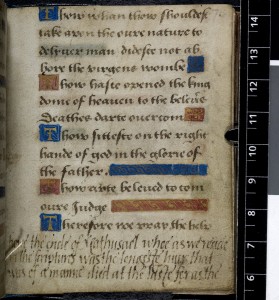 Thow whan thow shouldest
take apon the oure nature to
delyuer man didest not ab
hore the virgens wombe
Thow haste opened the king
dome of heauen to the beleue
Deathes darte ouercom
Thow sittest on the right
hande of god in the glorie of
the father
Thow arte beleued to com
oure Judge
Therefore we pray the help
the ende of Mathusael whoe as we reade
the scripturs was the longeste liuer that
was of a manne died at the
14
13
12
11
10
9
8
7
6